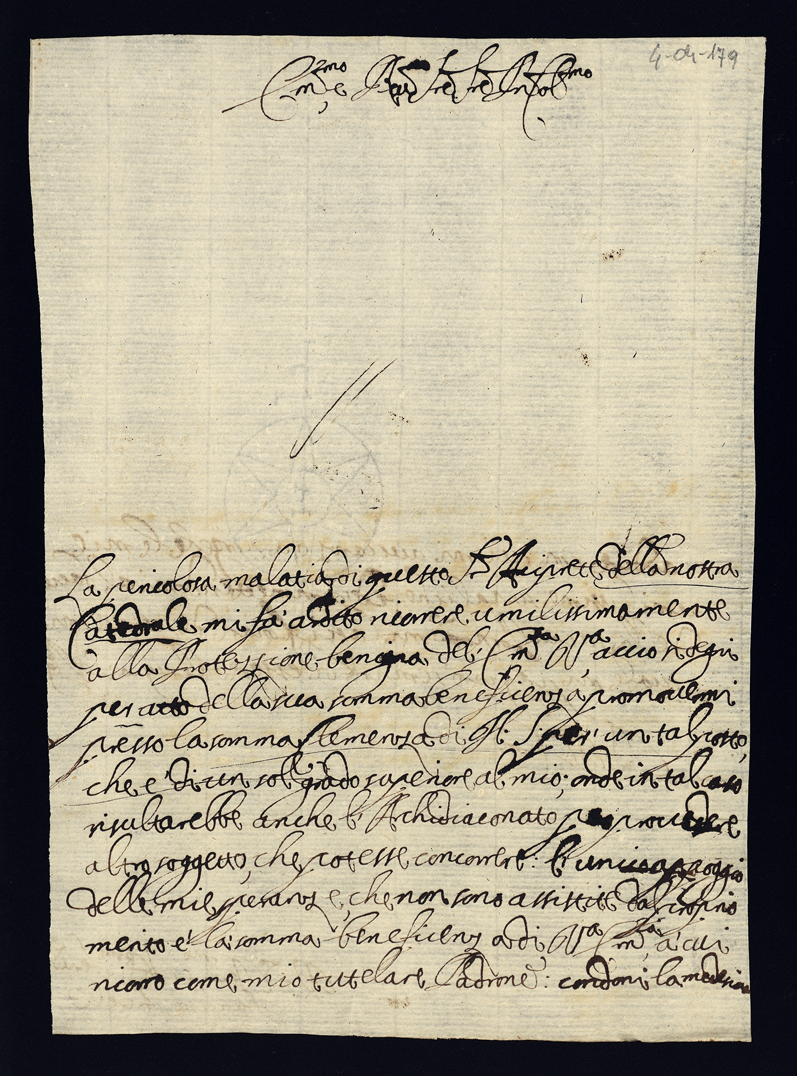 4-04-179
Em.mo e Rev.mo Sre Sre Pron Col.mo
La pericolosa malatia di questo Sr Arciprete della nostra
Catedrale mi fà ardito ricorere umilissimamente
alla Protezzione benigna del' Em.za V.a acciò si degni
per atto della sua somma beneficienza promovermi
presso la somma Clemenza di N. S. per un tal posto,
che e' di un sol' grado superiore al mio: onde in tal caso
risultarebbe anche l'Archidiaconato, per provedere
altro soggetto, che potesse concorrere: l'unico appoggio
delle mie speranze, che non sono assistite dal proprio
merito e' la somma beneficienza di V.a Em.za a cui
ricorro come mio tutelare Padrone: condoni la medesima